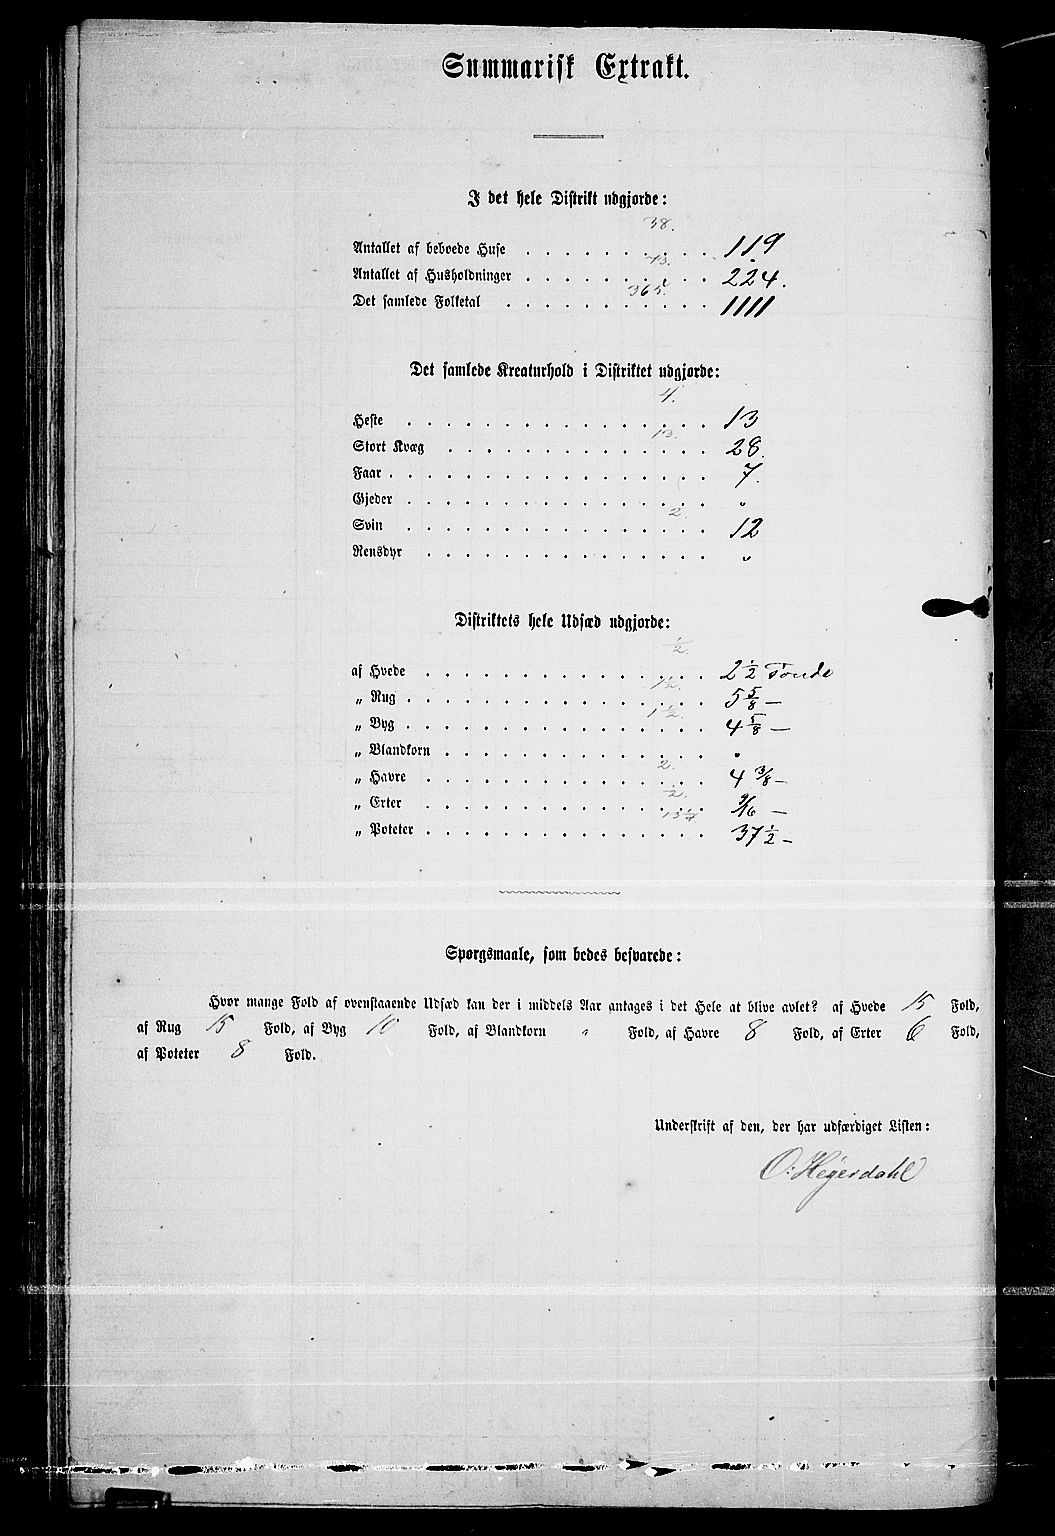 Summarisk Extrakt.
I det hele Distrikt udgjorde:
38.
Antallet af beboede Huse 119
73.
Antallet af Husholdninger 224.
365.
Det samlede Folketal 1111
Det samlede Kreaturhold i Distriktet udgjorde:
4.
Heste 13
13.
Stort Kvæg 28.
Faar 7.
Gjeder "
2.
Svin 12
Rensdyr "
Distriktets hele Udsæd udgjorde:
1/2.
af Hvede 2 1/2 Tønde
1 1/2.
„ Rug 5 5/8 —
1 1/2.
„ Byg 4 5/8 —
„ Blandkorn "
2.
„ Havre 4 3/8 —
1/2.
„ Erter 9/16 —
„ Poteter 37 1/2 —
Spørgsmaale, som bedes besvarede:
Hvor mange Fold af ovenstaaende Udsæd kan der i middels Aar antages i det Hele at blive avlet? af Hvede 15 Fold,
af Rug 15 Fold, af Byg 10 Fold, af Blandkorn " Fold, af Havre 8 Fold, af Erter 6 Fold,
af Poteter 8 Fold.
Underskrift af den, der har udfærdiget Listen:
O: Hegerdahl